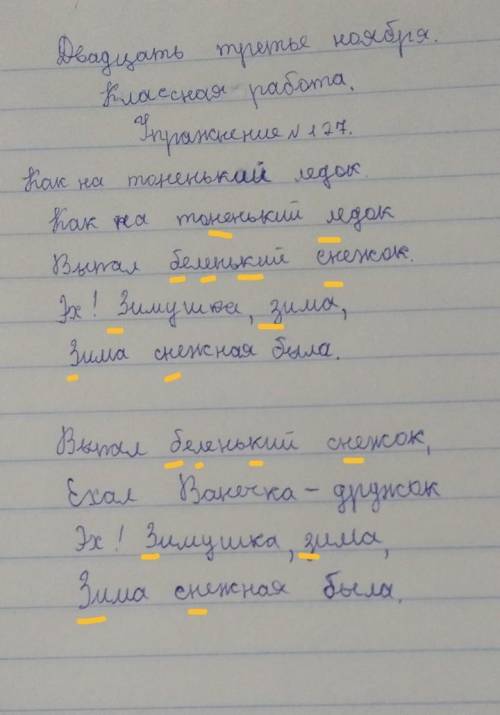 Двадцать третье ноября.
Классная работа.
Упражнение №127.
Как на тоненькай ледок
Как на тоненький ледок
Выпал беленький снежок.
Эх! Зимушка, зима,
Зима снежная была.
Выпал беленький снежок,
Ехал Ванечка – дружок
Эх! Зимушка, зима,
Зима снежная была.